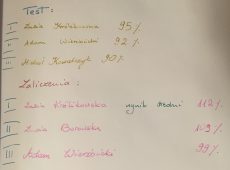 Test:
I Zuzia Królikowska 95%
II Adam Wierzbicki 92%
III Michał Kowalczyk 90%
Zaliczenia:
I Zuzia Królikowska wynik średni 112%
II Zuzia 109%
III Adam Wierzbicki 99%